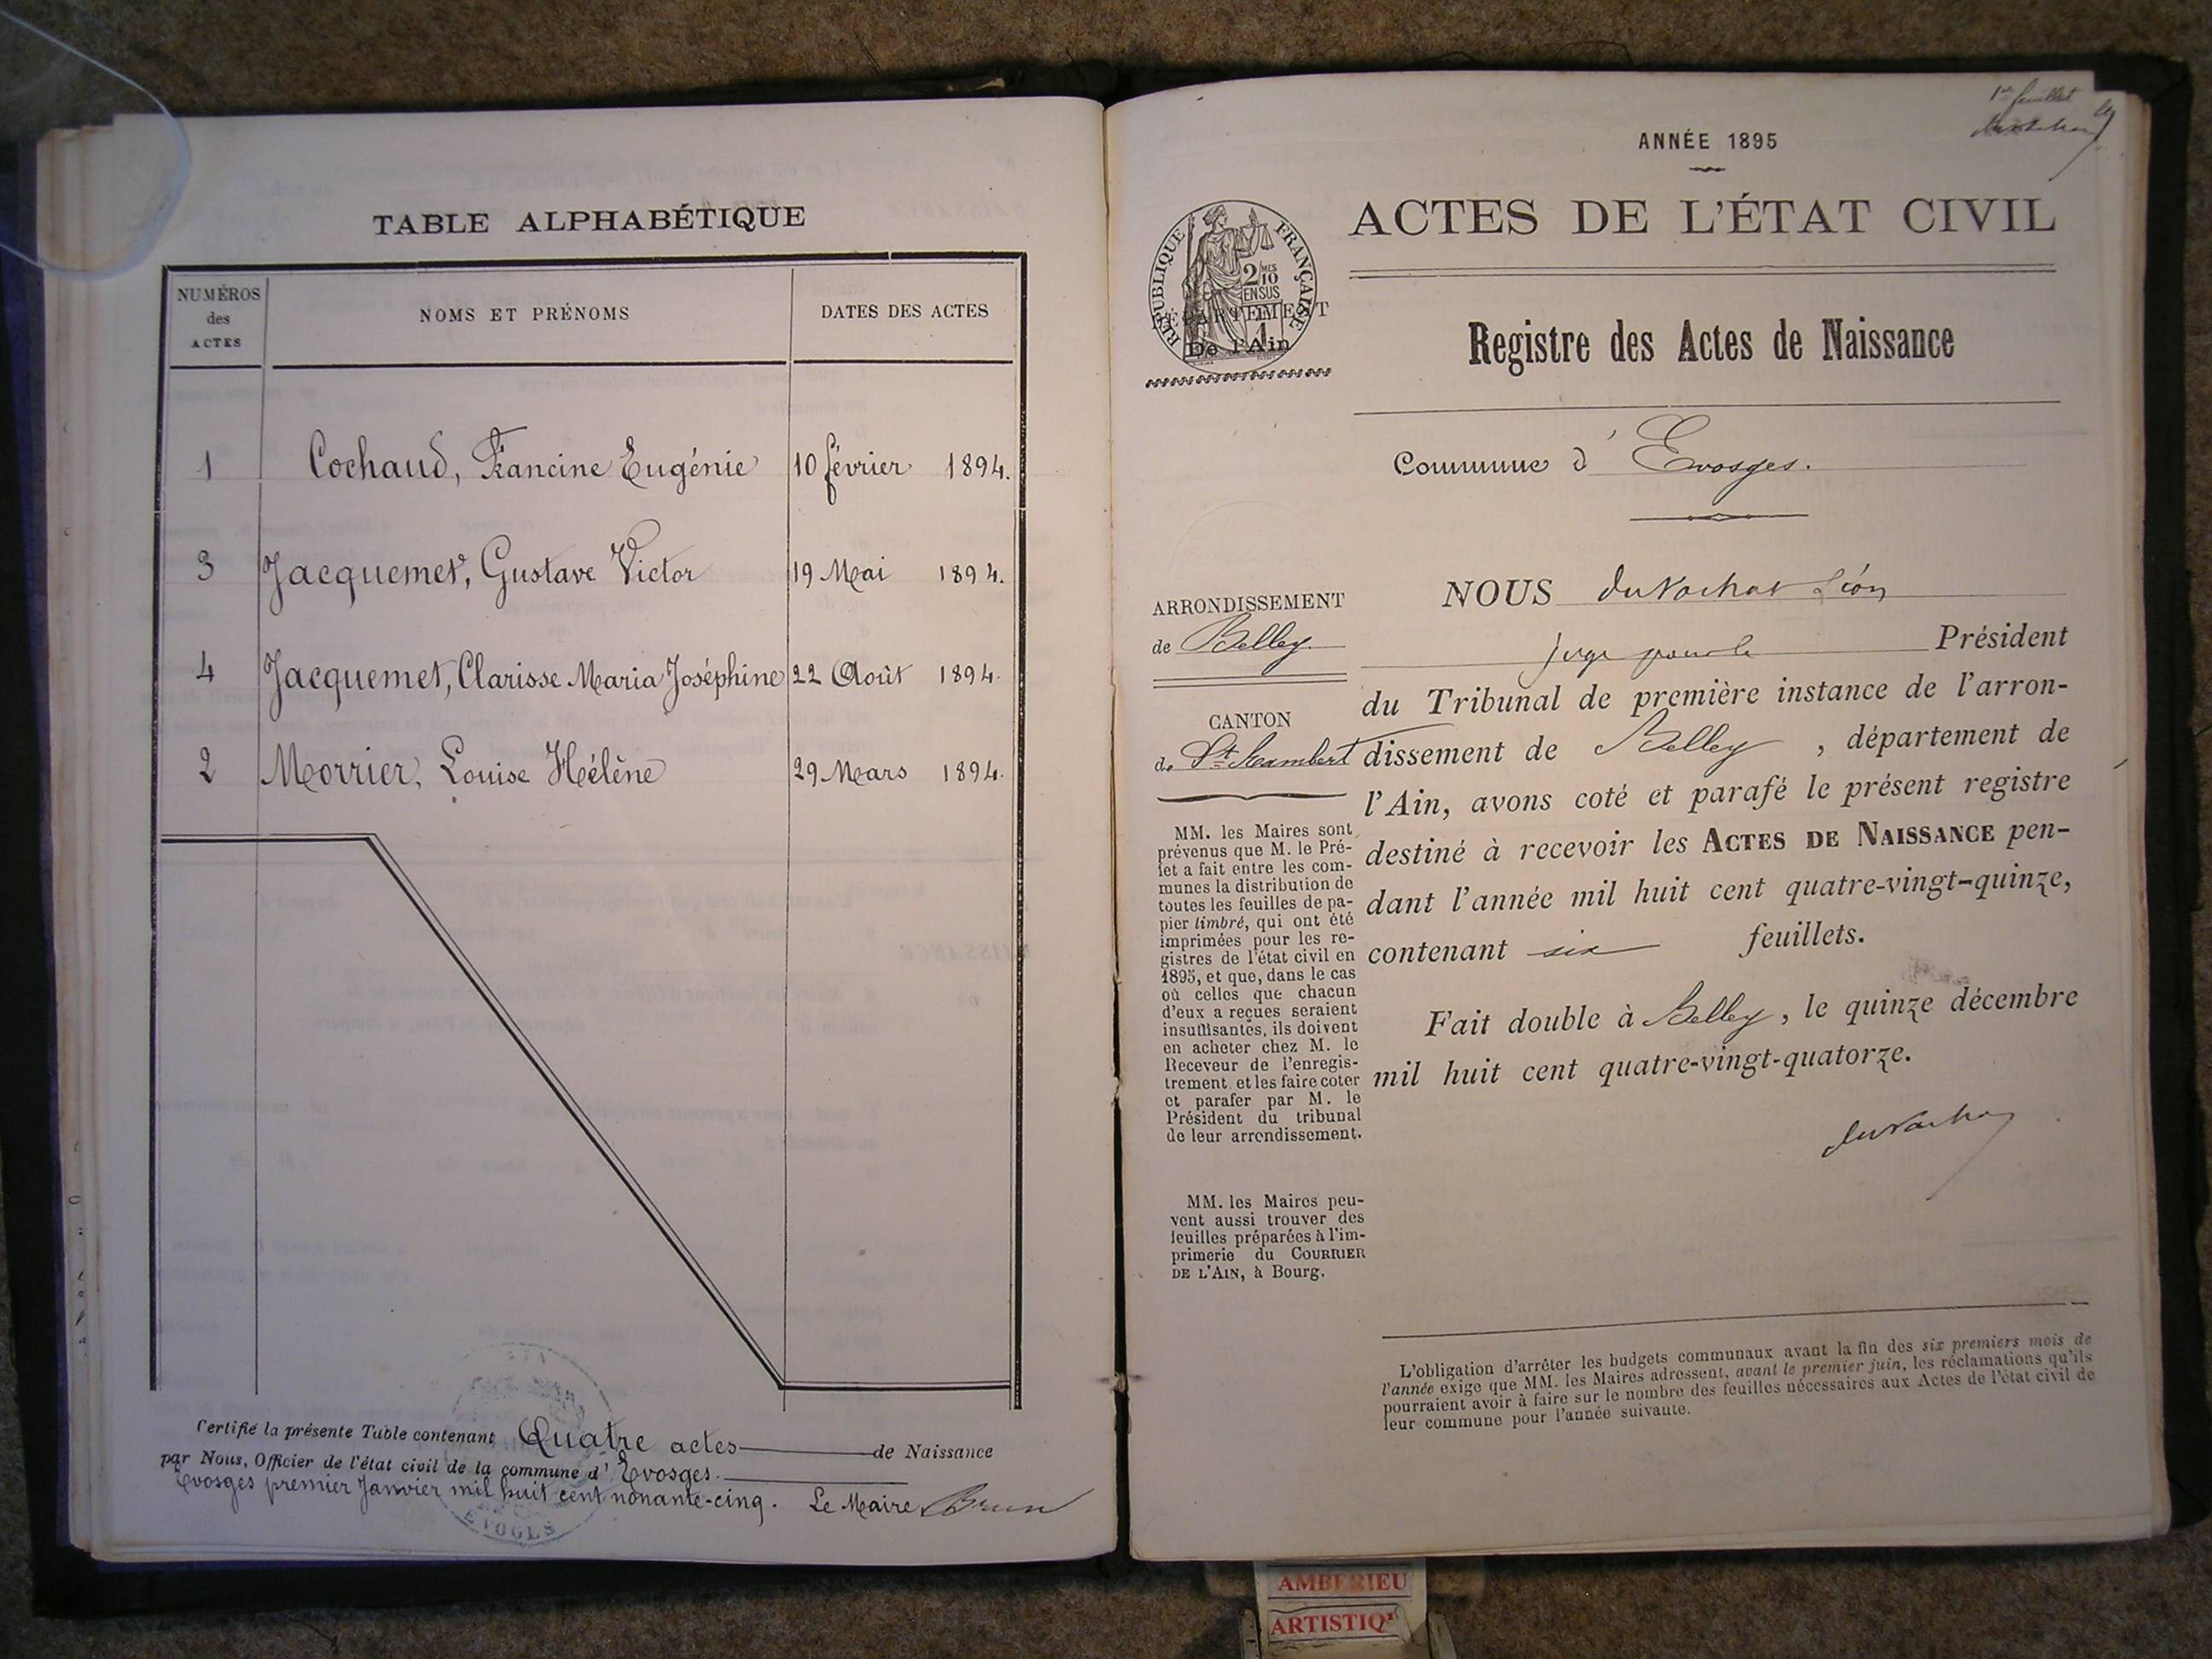 TABLE ALPHABÉTIQUE
NUMÉROS des ACTES
NOMS ET PRÉNOMS
DATES DES ACTES
1 Cochaud, Francine Eugénie 10 février 1894.
3 Jacquemet, Gustave Victor 19 Mai 1894.
4 Jacquemet, Clarisse Maria Joséphine 22 Août 1894.
2 Morrier, Louise Hélène 29 Mars 1894.
Certifié la présente Table contenant Quatre actes de Naissance
par Nous, Officier de l'état civil de la commune d' Evosges.
Evosges premier Janvier mil huit cent nonante-cinq. Le Maire Brun
1er feuillet
ANNÉE 1895
ACTES DE L'ÉTAT CIVIL
RÉPUBLIQUE FRANÇAISE
2/10 MES
EN SUS
DÉPARTEMENT
De l'Ain
Registre des Actes de Naissance
Commune d' Evosges.
ARRONDISSEMENT
de Belley.
CANTON
de St Rambert
MM. les Maires sont
prévenus que M. le Pré-
fet a fait entre les com-
munes la distribution de
toutes les feuilles de pa-
pier timbré, qui ont été
imprimées pour les re-
gistres de l'état civil en
1895, et que, dans le cas
où celles que chacun
d'eux a reçues seraient
insuffisantes, ils doivent
en acheter chez M. le
Receveur de l'enregis-
trement et les faire coter
et parafer par M. le
Président du tribunal
de leur arrondissement.
MM. les Maires peu-
vent aussi trouver des
feuilles préparées à l'im-
primerie du COURRIER
DE L'AIN, à Bourg.
NOUS duVachat Léon
juge pour le Président
du Tribunal de première instance de l'arron-
dissement de Belley, département de
l'Ain, avons coté et parafé le présent registre
destiné à recevoir les ACTES DE NAISSANCE pen-
dant l'année mil huit cent quatre-vingt-quinze,
contenant six feuillets.
Fait double à Belley, le quinze décembre
mil huit cent quatre-vingt-quatorze.
duVachat
L'obligation d'arrêter les budgets communaux avant la fin des six premiers mois de
l'année exige que MM. les Maires adressent, avant le premier juin, les réclamations qu'ils
pourraient avoir à faire sur le nombre des feuilles nécessaires aux Actes de l'état civil de
leur commune pour l'année suivante.
AMBERIEU
ARTISTIQ